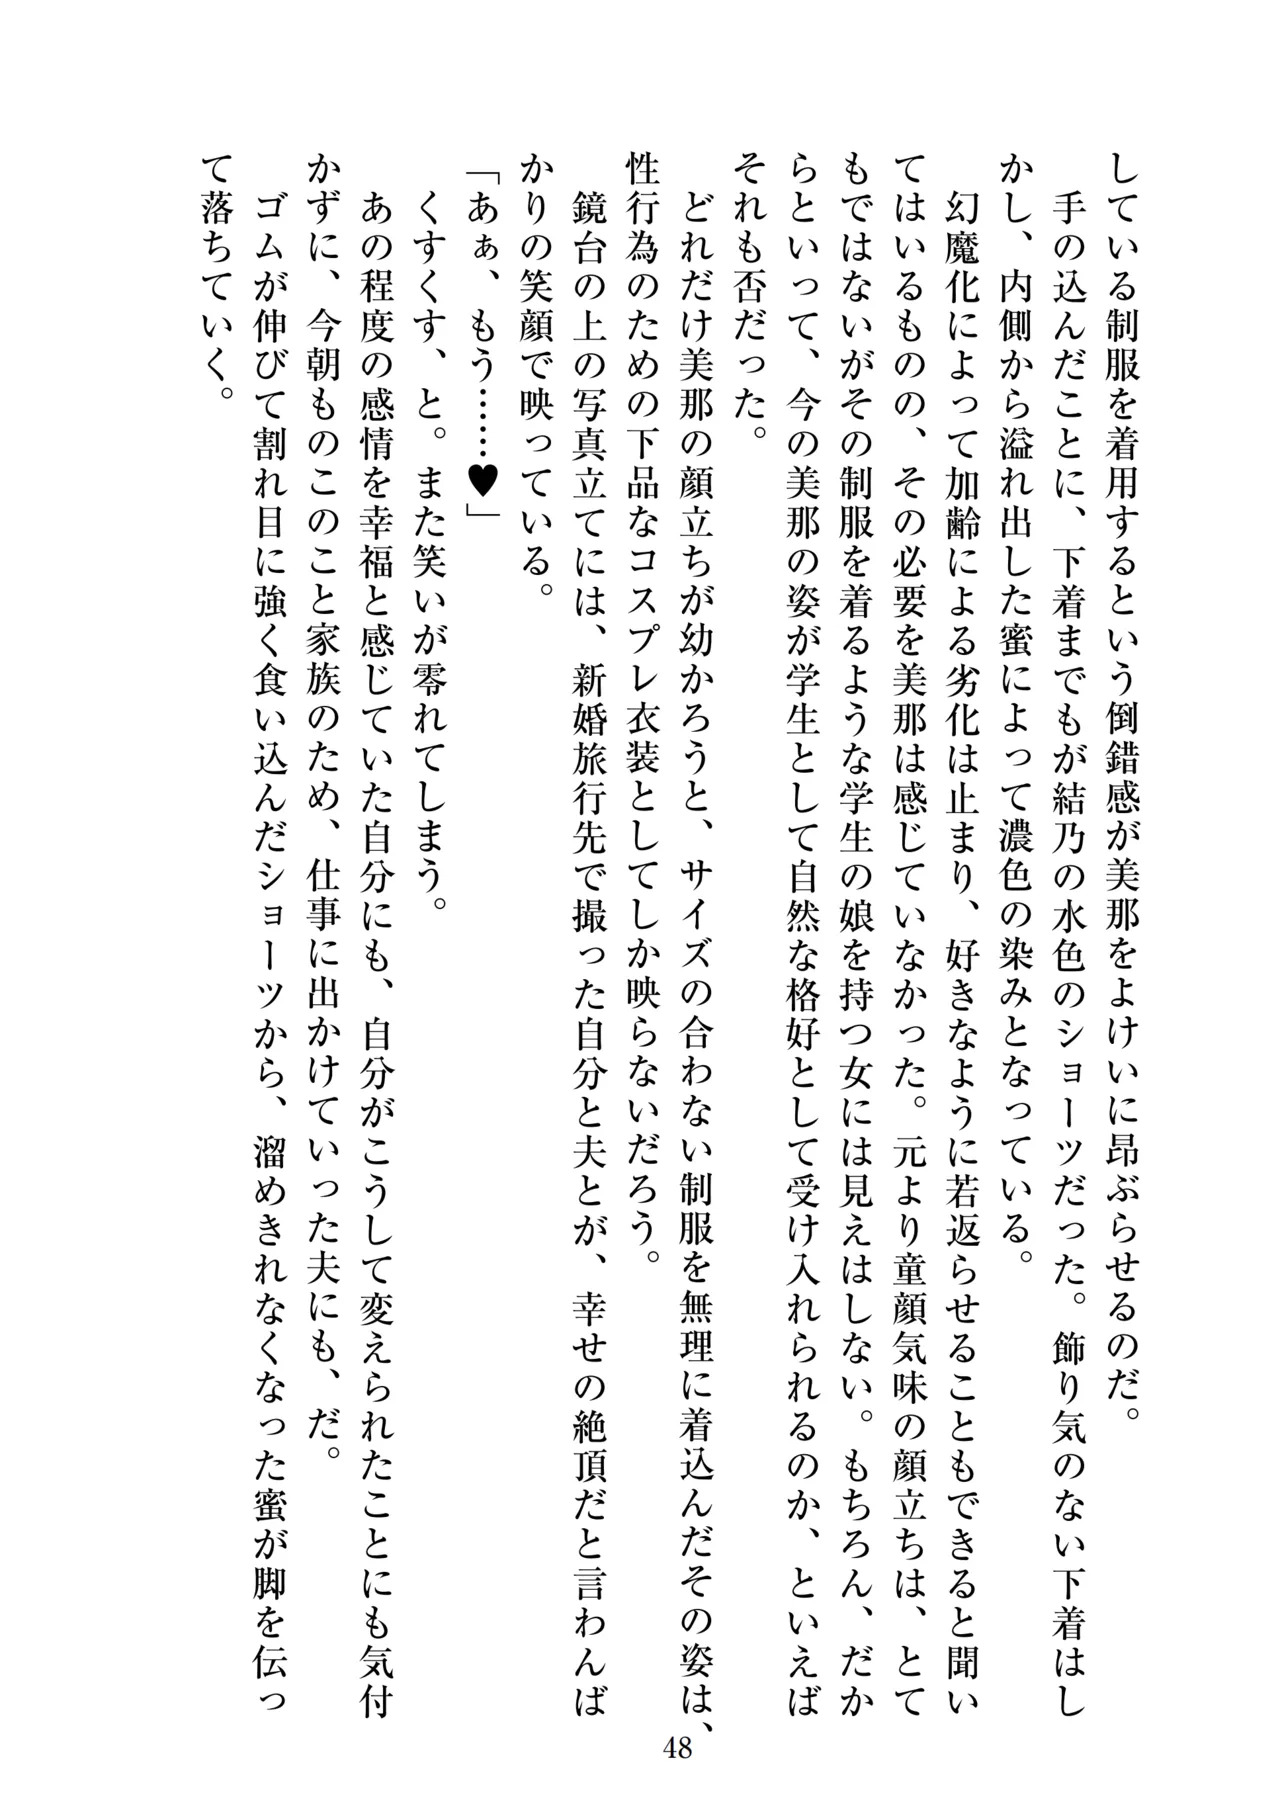 している制服を着用するという倒錯感が美那をよけいに昂ぶらせるのだ。
　手の込んだことに、下着までもが結乃の水色のショーツだった。飾り気のない下着はし
かし、内側から溢れ出した蜜によって濃色の染みとなっている。
　幻魔化によって加齢による劣化は止まり、好きなように若返らせることもできると聞い
てはいるものの、その必要を美那は感じていなかった。元より童顔気味の顔立ちは、とて
もではないがその制服を着るような学生の娘を持つ女には見えはしない。もちろん、だか
らといって、今の美那の姿が学生として自然な格好として受け入れられるのか、といえば
それも否だった。
　どれだけ美那の顔立ちが幼かろうと、サイズの合わない制服を無理に着込んだその姿は、
性行為のための下品なコスプレ衣装としてしか映らないだろう。
　鏡台の上の写真立てには、新婚旅行先で撮った自分と夫とが、幸せの絶頂だと言わんば
かりの笑顔で映っている。
「あぁ、もう……♥」
　くすくす、と。また笑いが零れてしまう。
　あの程度の感情を幸福と感じていた自分にも、自分がこうして変えられたことにも気付
かずに、今朝ものこのこと家族のため、仕事に出かけていった夫にも、だ。
　ゴムが伸びて割れ目に強く食い込んだショーツから、溜めきれなくなった蜜が脚を伝っ
て落ちていく。
48